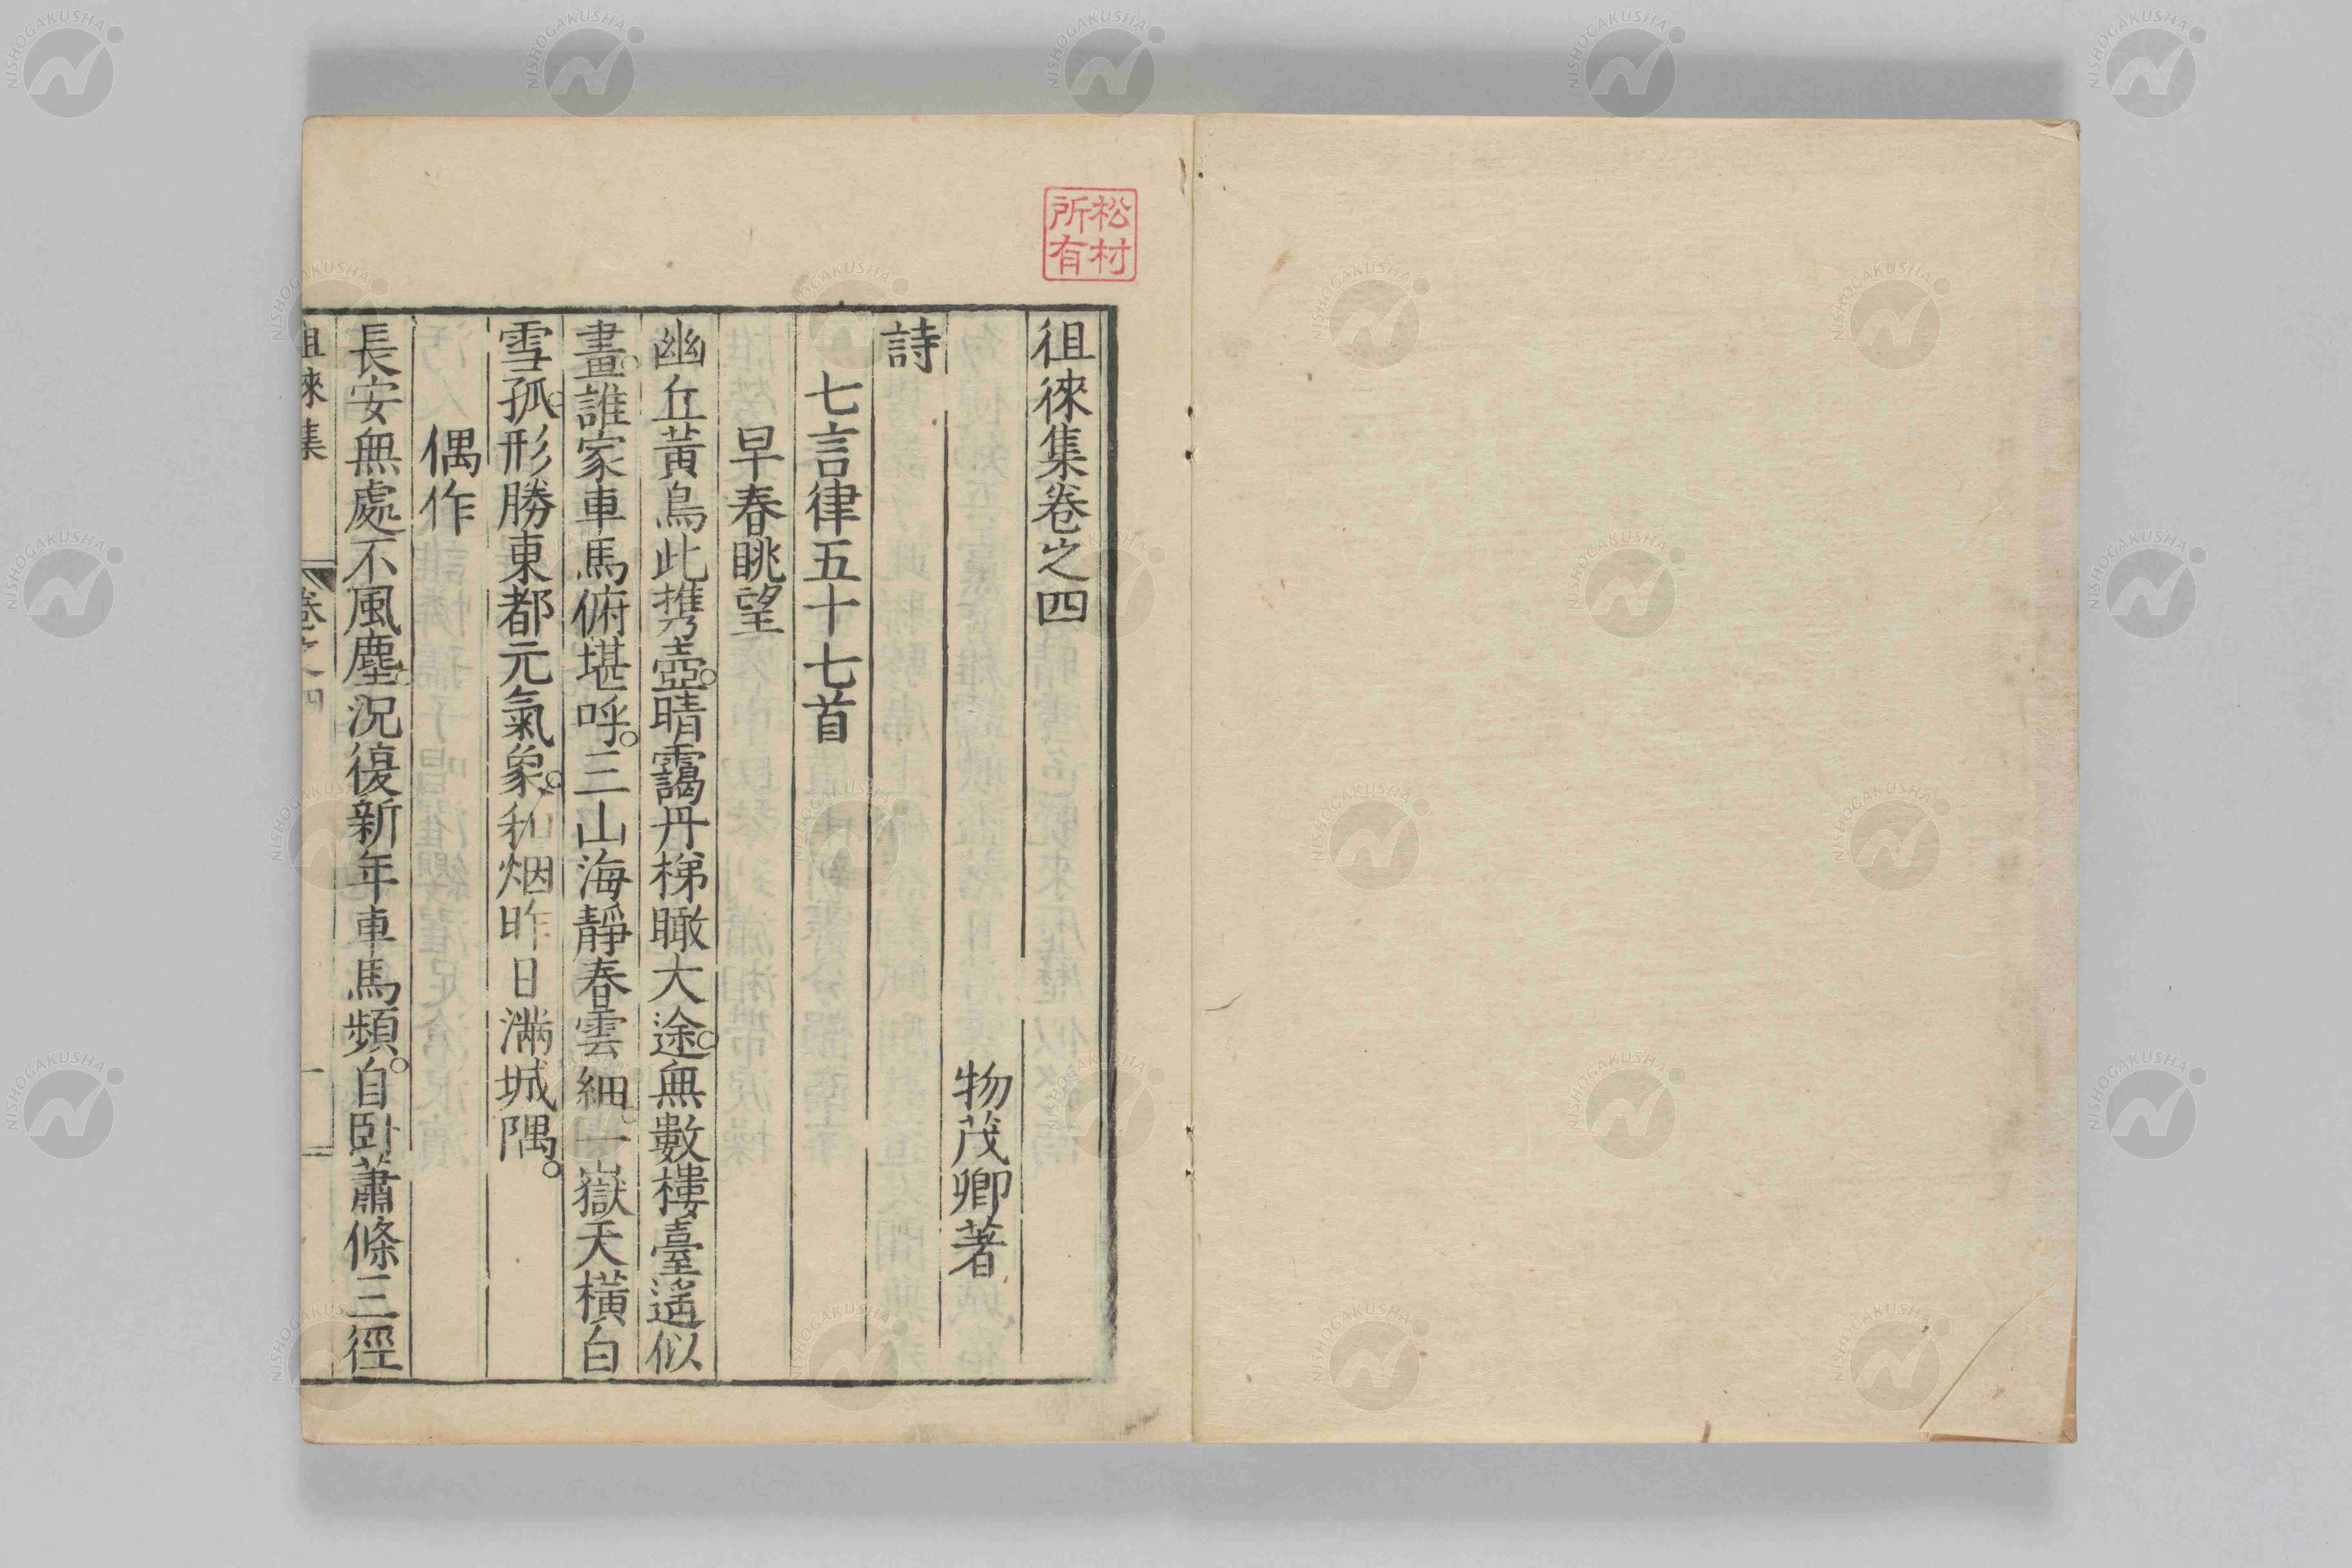 松村
所有
徂徠集卷之四
物茂卿著
詩
七言律五十七首
早春眺望
幽丘黃鳥此携壺。晴靄丹梯瞰大途。無數樓臺遙似
畫。誰家車馬俯堪呼。三山海靜春雲細。一嶽天橫白
雪孤。形勝東都元氣象。和烟昨日滿城隅。
偶作
長安無處不風塵況復新年車馬頻。自臥蕭條三徑
徂徠集
卷之四
一
NISHOGAKUSHA